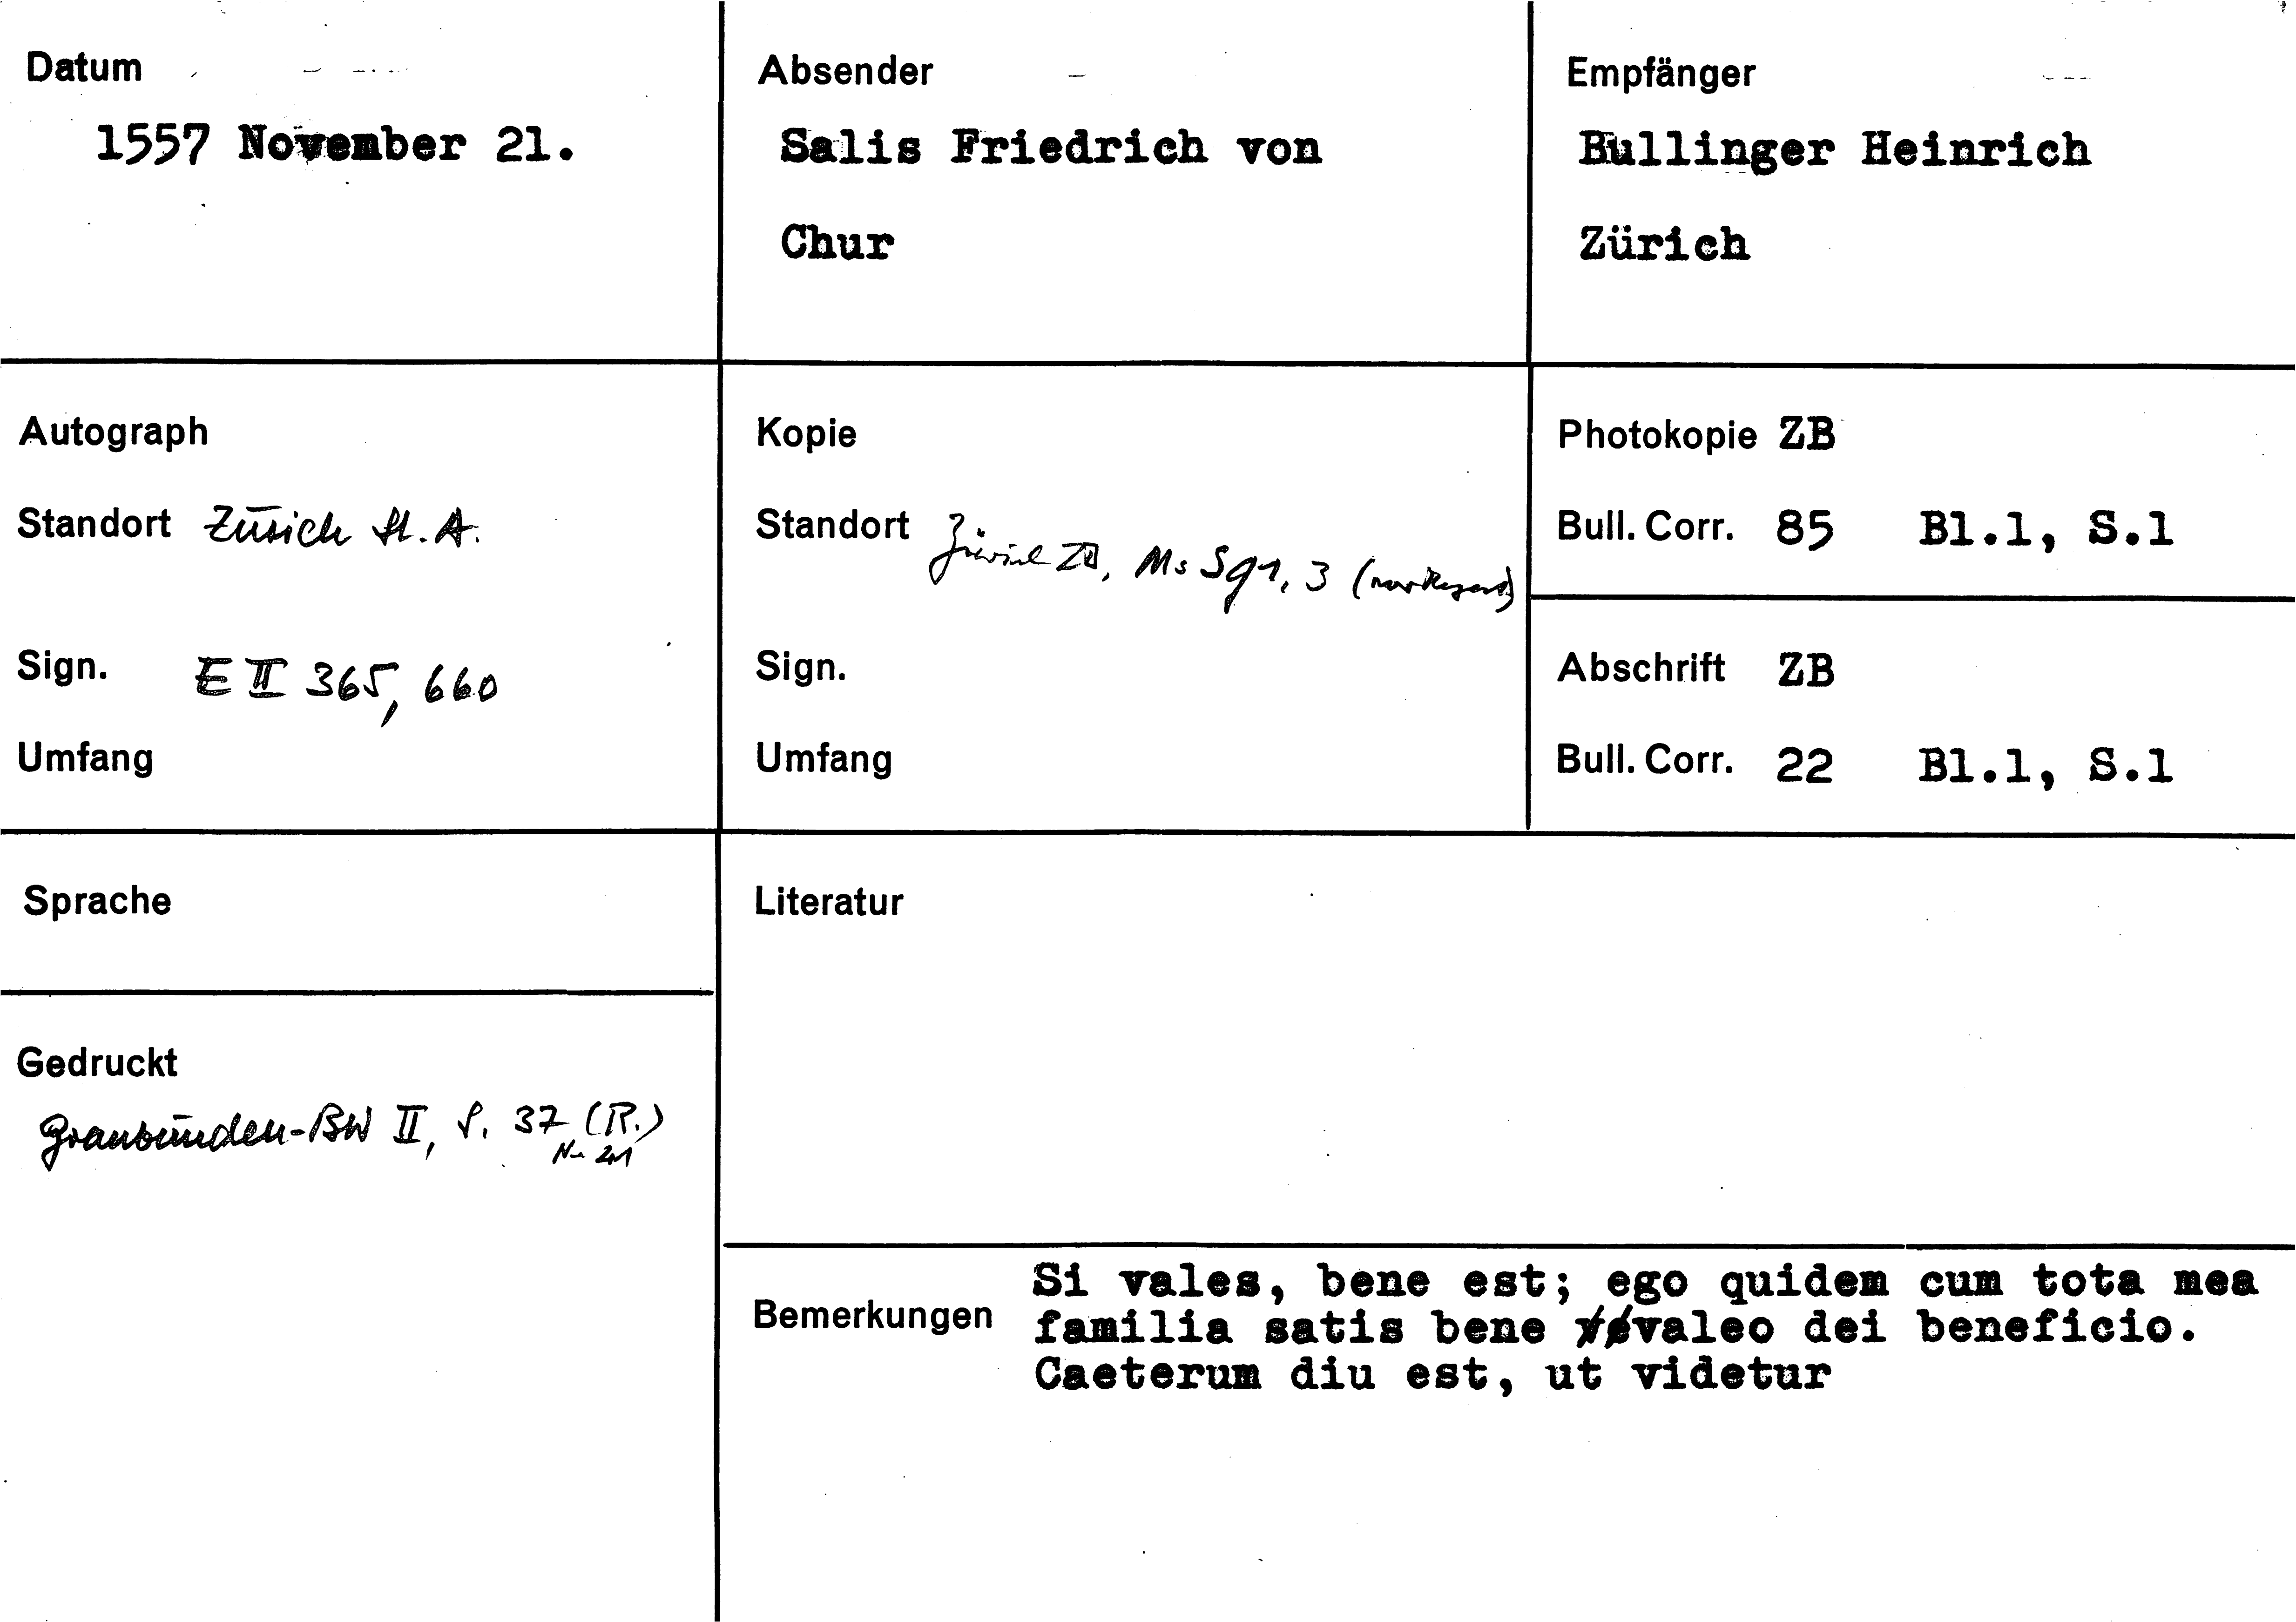 Datum
1557 November 21.
Absender
Salis Friedrich von
Chur
Empfänger
Bullinger Heinrich
Zürich
Autograph
Standort Zürich St. A.
Sign. E II 365, 660
Umfang
Kopie
Standort Zürich ZB, Ms S 91, 3 (nur Regest)
Sign.
Umfang
Photokopie ZB
Bull. Corr. 85 Bl.1, S.1
Abschrift ZB
Bull. Corr. 22 Bl.1, S.1
Sprache
Gedruckt
Graubünden-BW II, S. 37 (R.)
Literatur
Bemerkungen
Si vales, bene est; ego quidem cum tota mea
familia satis bene valeo dei beneficio.
Caeterum diu est, ut videtur